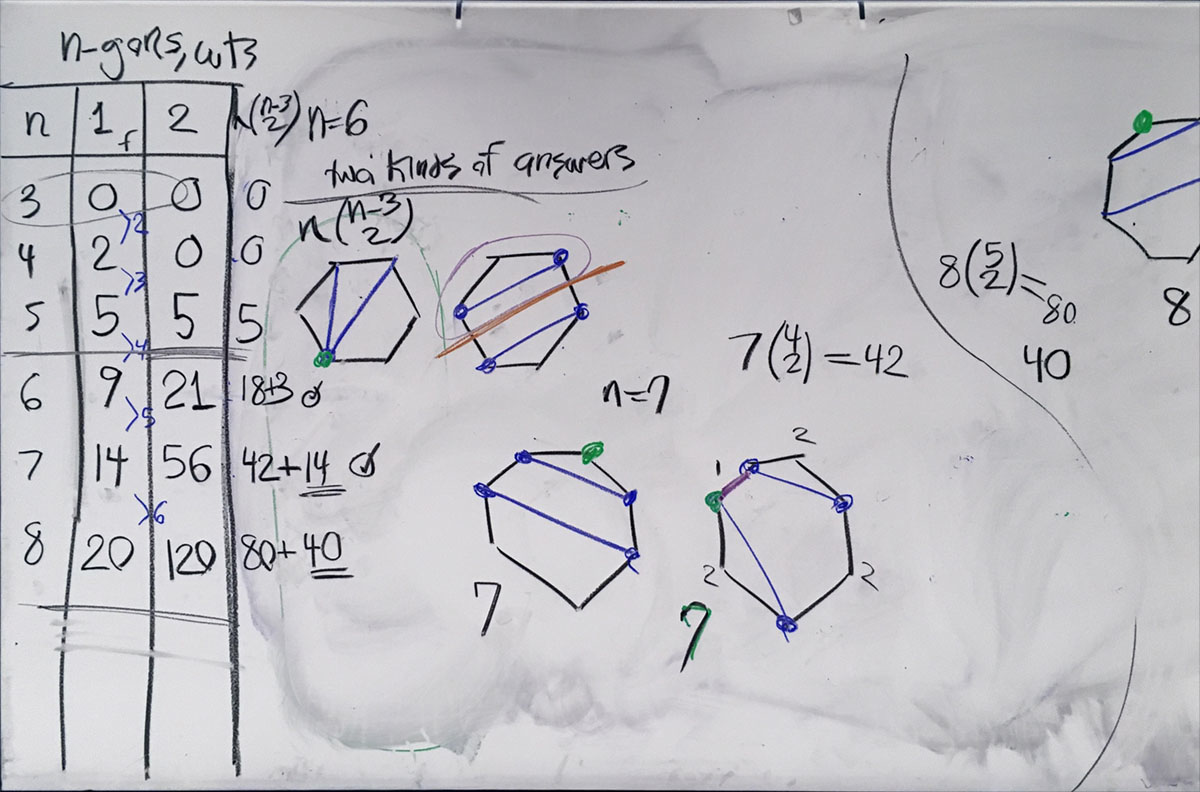 n-gons, cuts
n 1 f 2 n(n-3 2)
3 0 0 0
>2
4 2 0 0
>3
5 5 5 5
>4
6 9 21 18+3
>5
7 14 56 42+14
>6
8 20 120 80+40
n=6
two kinds of answers
n(n-3 2)
n=7
7(4 2)=42
7
1 2 2 2
7
8(5 2)=80
40
8